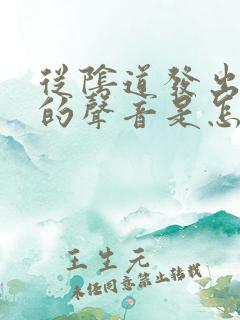 從陰道發出
的聲音是怎
王生元
未经同意禁止转载